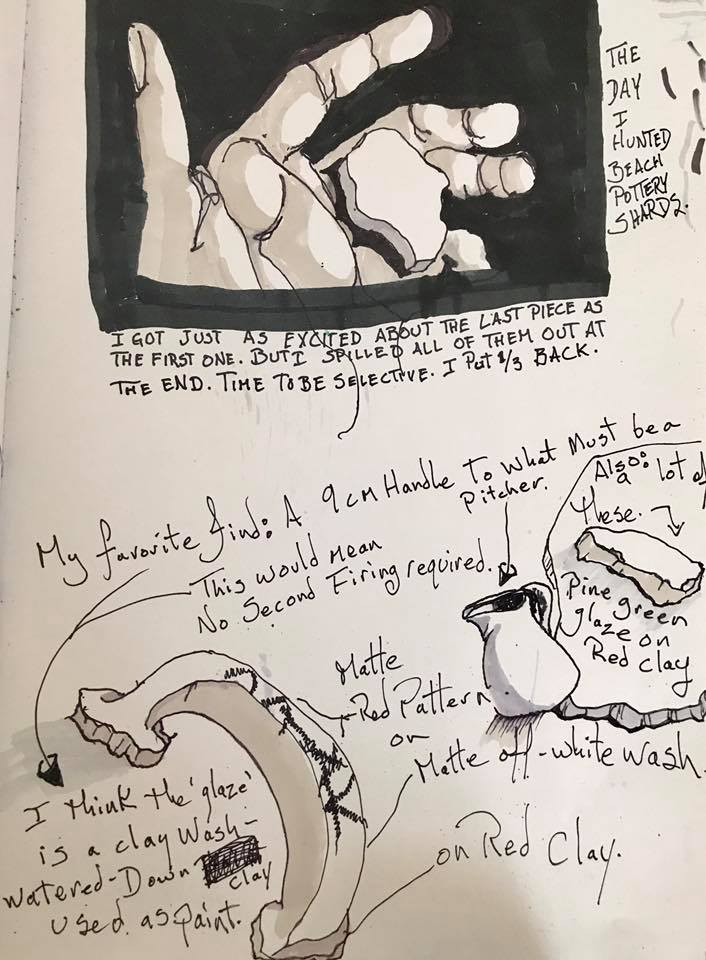 THE
DAY
I
HUNTED
BEACH
POTTERY
SHARDS.
I GOT JUST AS EXCITED ABOUT THE LAST PIECE AS
THE FIRST ONE. BUT I SPILLED ALL OF THEM OUT AT
THE END. TIME TO BE SELECTIVE. I PUT 1/3 BACK.
My favorite find: A 9cm Handle To what Must be a
Pitcher.
This would mean
No Second Firing required.
Also:
a lot of
these.
Pine green
glaze on
Red clay
Matte
Red Pattern
on
Matte off-white wash.
on Red Clay.
I think the 'glaze'
is a clay wash-
watered-Down
clay
used as paint.